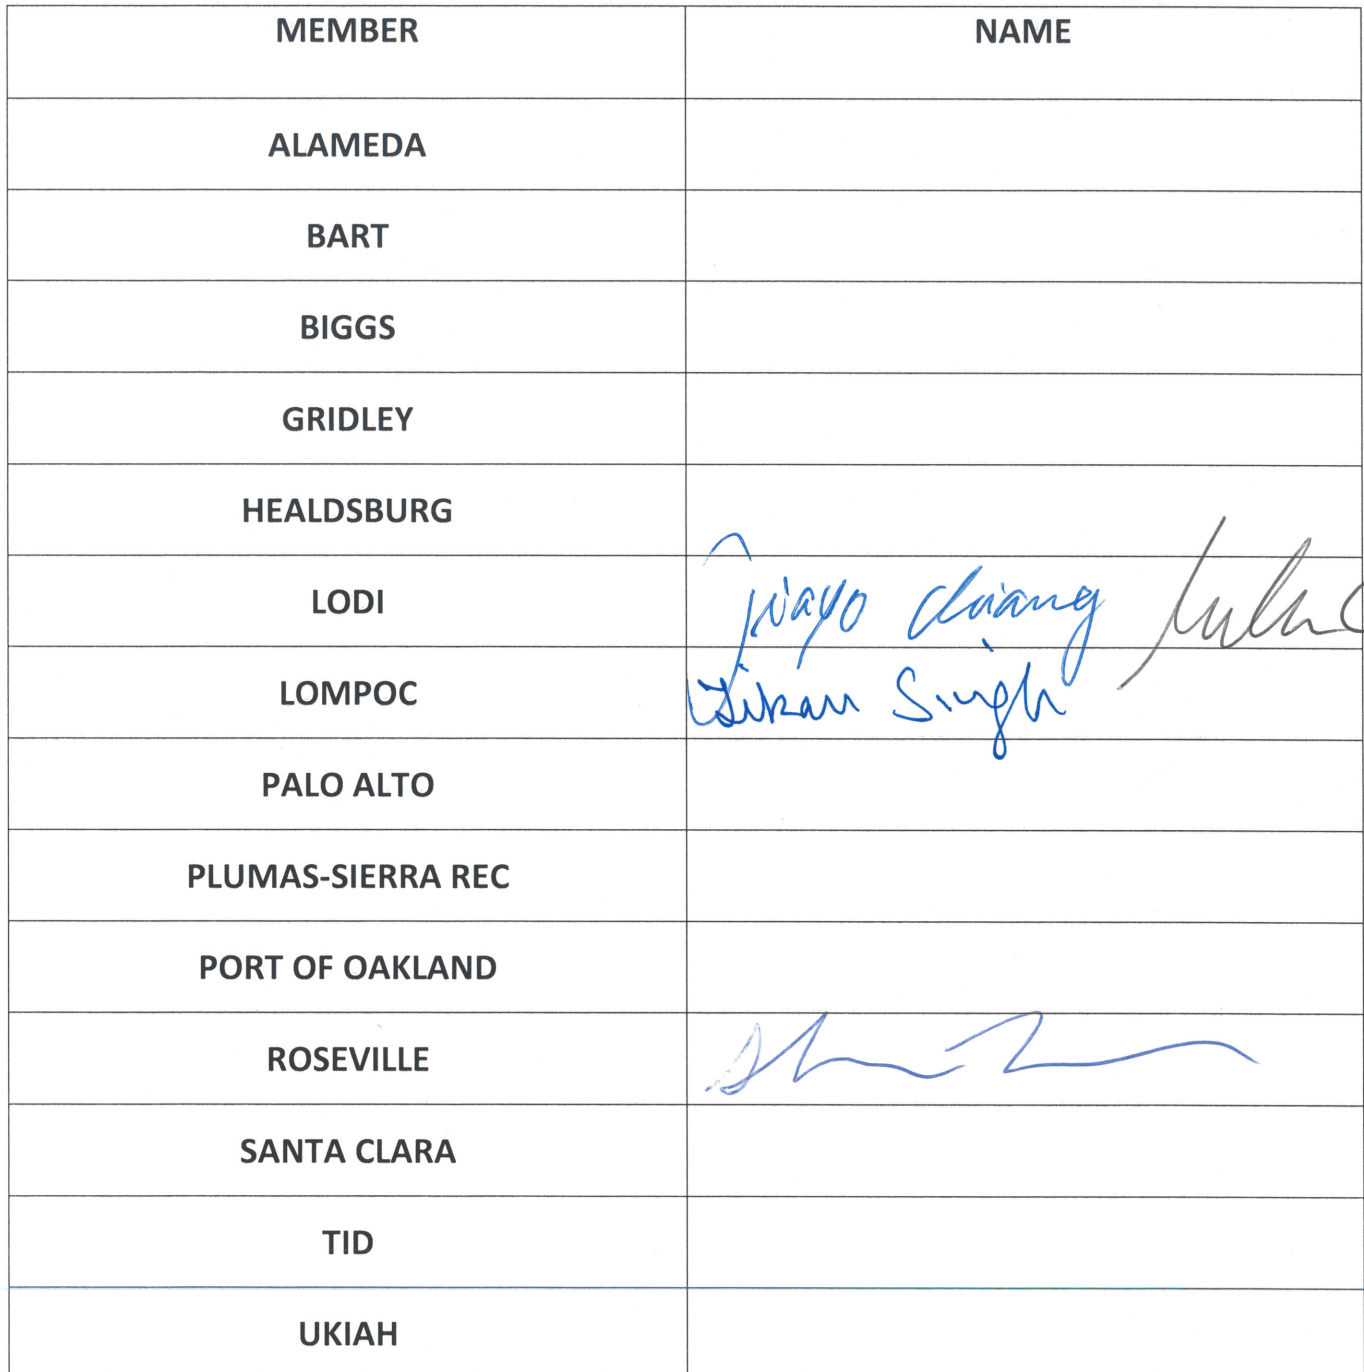 MEMBER NAME
ALAMEDA
BART
BIGGS
GRIDLEY
HEALDSBURG
LODI Jiayo Chiang
LOMPOC Tikan Singh
PALO ALTO
PLUMAS-SIERRA REC
PORT OF OAKLAND
ROSEVILLE
SANTA CLARA
TID
UKIAH